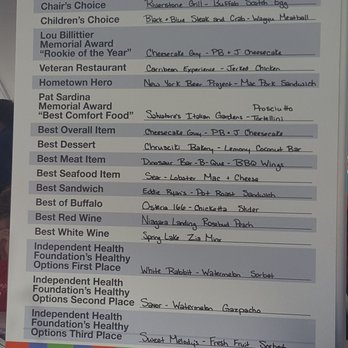 Chair's Choice Riverstone Grill - Buffalo Scotch Egg
Children's Choice Black + Blue Steak and Crab - Wagyu Meatball
Lou Billittier
Memorial Award
"Rookie of the Year" Cheesecake Guy - PB + J Cheesecake
Veteran Restaurant Carribean Experience - Jerked Chicken
Hometown Hero New York Beer Project - Mac Pork Sandwich
Pat Sardina
Memorial Award Prosciutto
"Best Comfort Food" Salvatore's Italian Gardens - Tortellini
Best Overall Item Cheesecake Guy - PB + J Cheesecake
Best Dessert Chrusciki Bakery - Lemony Coconut Bar
Best Meat Item Dinosaur Bar-B-Que - BBQ Wings
Best Seafood Item Sear - Lobster Mac + Cheese
Best Sandwich Eddie Ryan's - Pot Roast Sandwich
Best of Buffalo Osteria 166 - Chicketta Slider
Best Red Wine Niagara Landing Rosebud Peach
Best White Wine Spring Lake Zia Minx
Independent Health
Foundation's Healthy
Options First Place White Rabbit - Watermelon Sorbet
Independent Health
Foundation's Healthy
Options Second Place Savor - Watermelon Gazpacho
Independent Health
Foundation's Healthy
Options Third Place Sweet Melody's - Fresh Fruit Sorbet